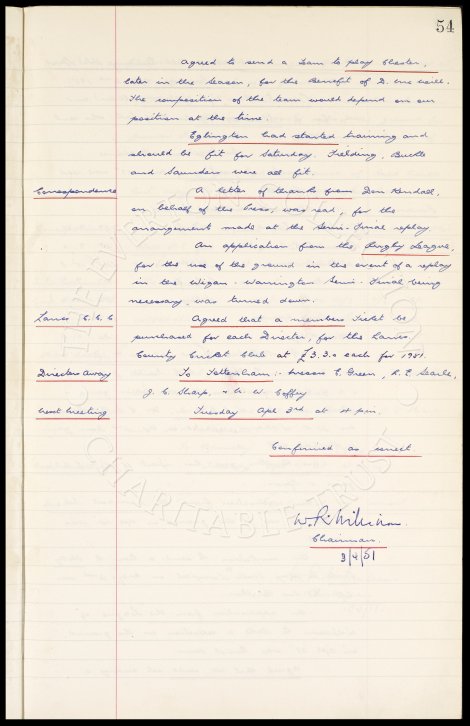 54
agreed to send a team to play Chester,
later in the season, for the benefit of D. McNeill.
The composition of the team would depend on our
position at the time.
Eglington had started training and
should be fit for Saturday. Fielding, Buckle
and Saunders were all fit.
Correspondence A letter of thanks from Don Kendall,
on behalf of the Press, was read, for the
arrangement made at the Semi-Final replay
An application from the Rugby League,
for the use of the ground in the event of a replay
in the Wigan - Warrington Semi-Final being
necessary, was turned down.
Lancs C.C.C Agreed that a members Ticket be
purchased for each Director, for the Lancs
County Cricket Club at £3.3.0 each for 1951.
Directors Away To Tottenham:- Messrs C. Green, R.E. Searle,
J.C. Sharp, & A.W. Coffey
Next Meeting Tuesday Apl 3rd at 4 pm.
Confirmed as correct
W.R. Williams
Chairman.
3/4/51
THE EVERTON COLLECTION CHARITABLE TRUST